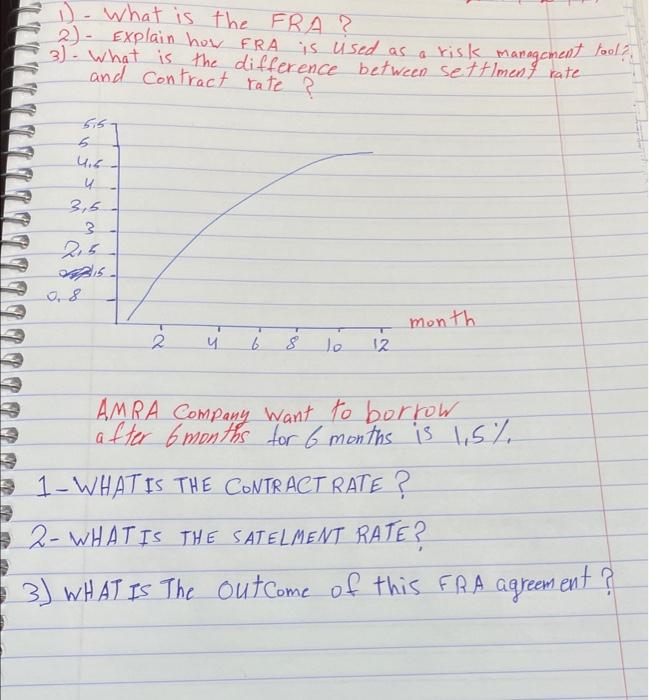 1) - What is the FRA ?
2) - Explain how FRA is used as a risk management tool?
3) - What is the difference between settlment rate
and contract rate ?
5,5
5
4,5
4
3,5
3
2,5
0,8
month
2 4 6 8 10 12
AMRA Company want to borrow
after 6 months for 6 months is 1,5%.
1- WHAT IS THE CONTRACT RATE ?
2- WHAT IS THE SATELMENT RATE?
3) WHAT IS The outcome of this FRA agreement ?